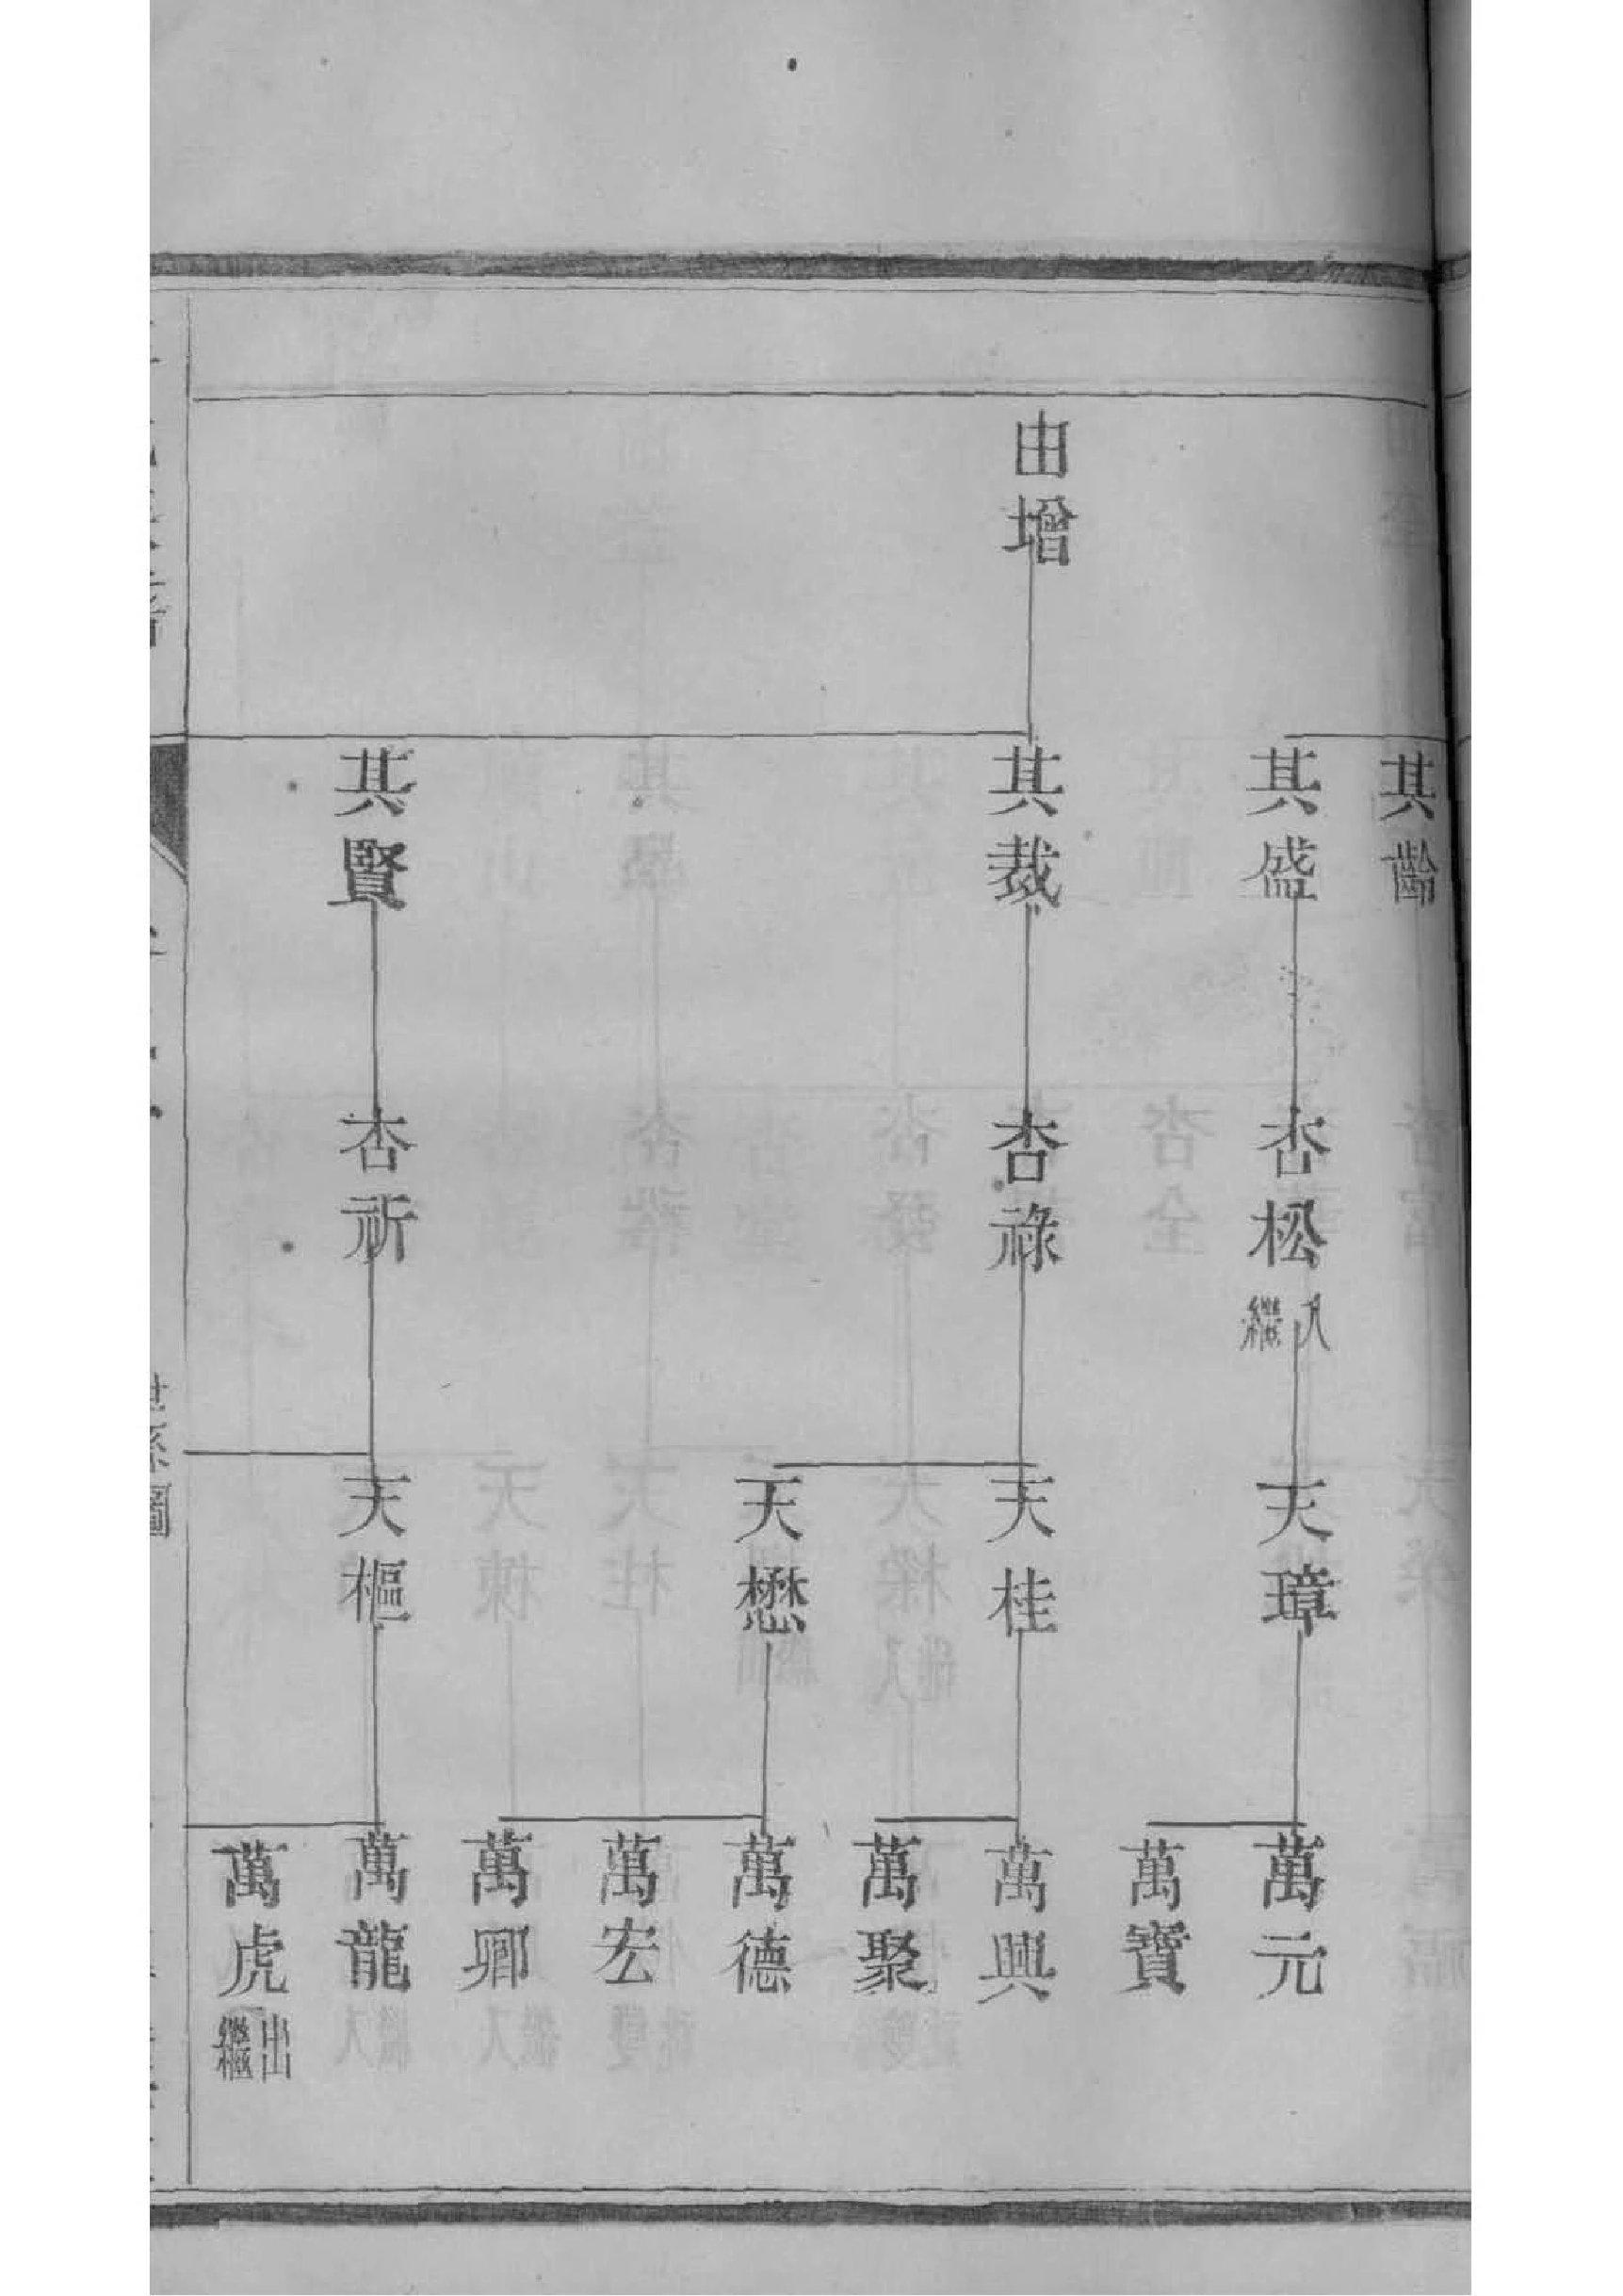 由增
其齡
其盛
其裁
其賢
杏松 入繼
杏祿
杏祈
天璋
天桂
天懋
天樞
萬元
萬寶
萬興
萬聚
萬德
萬宏
萬卿
萬龍
萬虎 出繼